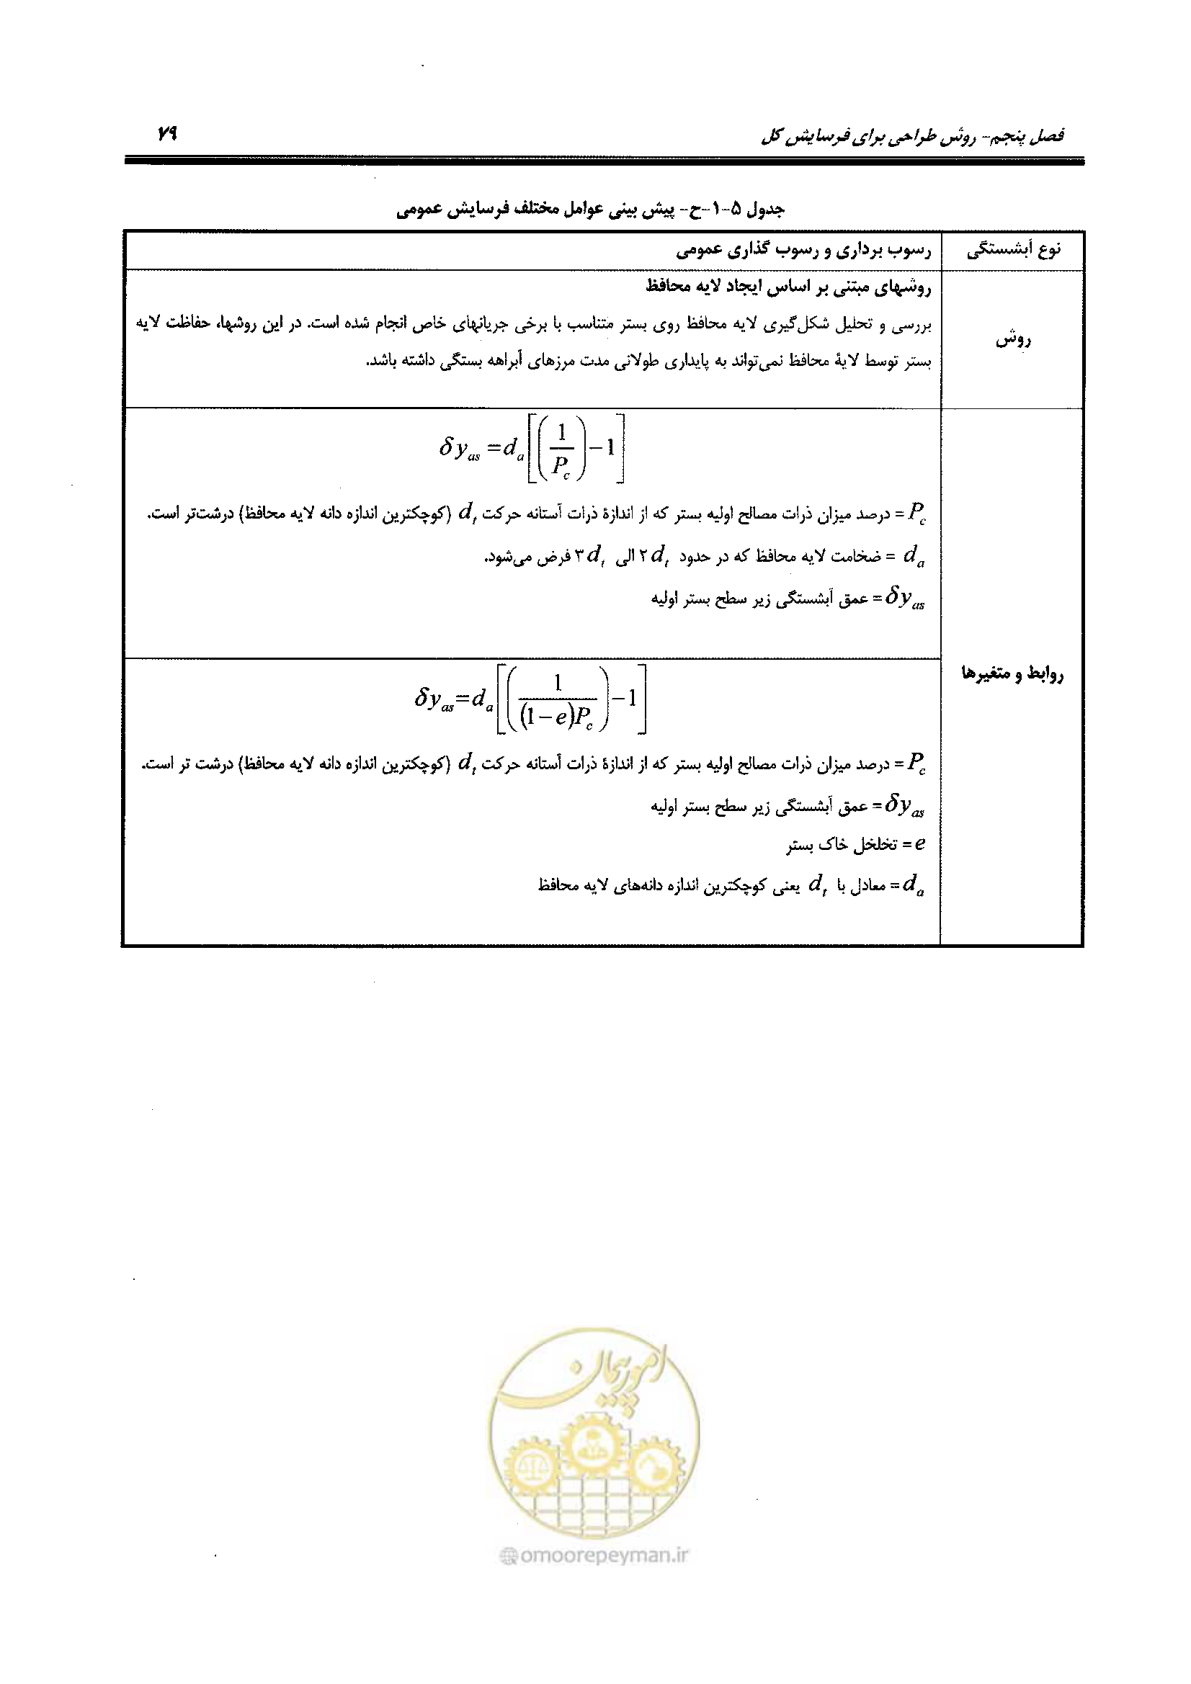 فصل پنجم- روش طراحی برای فرسایش کل ۷۹
جدول ۵-۱-ح- پیش بینی عوامل مختلف فرسایش عمومی
نوع آبشستگی رسوب برداری و رسوب گذاری عمومی
روش
روشهای مبتنی بر اساس ایجاد لایه محافظ
بررسی و تحلیل شکل‌گیری لایه محافظ روی بستر متناسب با برخی جریانهای خاص انجام شده است. در این روشها، حفاظت لایه
بستر توسط لایهٔ محافظ نمی‌تواند به پایداری طولانی مدت مرزهای آبراهه بستگی داشته باشد.
روابط و متغیرها
δy_as = d_a [(1/P_c) − 1]
P_c = درصد میزان ذرات مصالح اولیه بستر که از اندازهٔ ذرات آستانه حرکت d_t (کوچکترین اندازه دانه لایه محافظ) درشت‌تر است.
d_a = ضخامت لایه محافظ که در حدود ۲d_t الی ۳d_t فرض می‌شود.
δy_as = عمق آبشستگی زیر سطح بستر اولیه
δy_as = d_a [(1/((1−e)P_c)) − 1]
P_c = درصد میزان ذرات مصالح اولیه بستر که از اندازهٔ ذرات آستانه حرکت d_t (کوچکترین اندازه دانه لایه محافظ) درشت تر است.
δy_as = عمق آبشستگی زیر سطح بستر اولیه
e = تخلخل خاک بستر
d_a = معادل با d_t یعنی کوچکترین اندازه دانه‌های لایه محافظ
امور پیمان
@omoorepeyman.ir